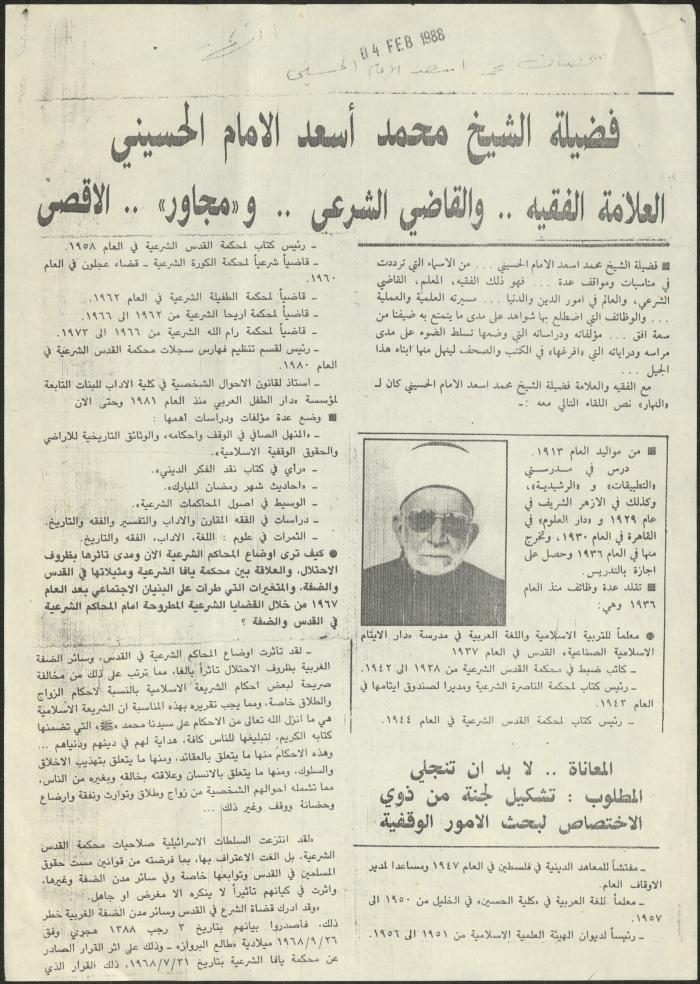 04 FEB 1988
محمد اسعد الامام الحسيني
فضيلة الشيخ محمد أسعد الامام الحسيني
العلامة الفقيه .. والقاضي الشرعي .. و«مجاور» .. الاقصى
■ فضيلة الشيخ محمد اسعد الامام الحسيني ... من الاسماء التي ترددت
في مناسبات ومواقف عدة ... فهو ذلك الفقيه، المعلم، القاضي
الشرعي، والعالم في امور الدين والدنيا ... مسيرته العلمية والعملية
... والوظائف التي اضطلع بها شواهد على مدى ما يتمتع به ضيفنا من
سعة افق ... مؤلفاته ودراساته التي وضعها تسلط الضوء على مدى
مراسه ودراياته التي «افرغها» في الكتب والصحف لينهل منها ابناء هذا
الجيل ...
مع الفقيه والعلامة فضيلة الشيخ محمد اسعد الامام الحسيني كان لـ
«النهار» نص اللقاء التالي معه :ـ
■ من مواليد العام ١٩١٣.
درس في مدرستي
«التطبيقات» و «الرشيدية»،
وكذلك في الازهر الشريف في
عام ١٩٢٩ و «دار العلوم» في
القاهرة في العام ١٩٣٠، وتخرج
منها في العام ١٩٣٦ وحصل على
اجازة بالتدريس
■ تقلد عدة وظائف منذ العام
١٩٣٦ وهي:
● معلماً للتربية الاسلامية واللغة العربية في مدرسة «دار الايتام
الاسلامية الصناعية» في القدس العام ١٩٣٧
ـ كاتب ضبط في محكمة القدس الشرعية من ١٩٣٨ الى ١٩٤٢.
ـ رئيس كتاب لمحكمة الناصرة الشرعية ومديرا لصندوق ايتامها في
العام ١٩٤٣.
ـ رئيس كتاب لمحكمة القدس الشرعية في العام ١٩٤٤.
المعاناة .. لا بد ان تنجلي
المطلوب : تشكيل لجنة من ذوي
الاختصاص لبحث الامور الوقفية
ـ مفتشاً للمعاهد الدينية في فلسطين في العام ١٩٤٧ ومساعدا لمدير
الاوقاف العام.
ـ معلماً للغة العربية في «كلية الحسين» في الخليل من ١٩٥٠ الى
١٩٥٧.
ـ رئيساً لديوان الهيئة العلمية الاسلامية من ١٩٥١ الى ١٩٥٦.
ـ رئيس كتاب لمحكمة القدس الشرعية في العام ١٩٥٨.
ـ قاضياً شرعياً لمحكمة الكورة الشرعية ـ قضاء عجلون في العام
١٩٦٠.
ـ قاضياً لمحكمة الطفيلة الشرعية في العام ١٩٦٢.
ـ قاضياً لمحكمة اريحا الشرعية من ١٩٦٢ الى ١٩٦٦.
ـ قاضياً لمحكمة رام الله الشرعية من ١٩٦٦ الى ١٩٧٣.
ـ رئيس لقسم تنظيم فهارس سجلات محكمة القدس الشرعية في
العام ١٩٨٠.
ـ استاذ لقانون الاحوال الشخصية في كلية الاداب للبنات التابعة
لمؤسسة «دار الطفل العربي منذ العام ١٩٨١ وحتى الان
■ وضع عدة مؤلفات ودراسات أهمها :
ـ «المنهل الصافي في الوقف واحكامه» والوثائق التاريخية للاراضي
والحقوق الوقفية الاسلامية».
ـ «رأي في كتاب نقد الفكر الديني».
ـ «احاديث شهر رمضان المبارك».
ـ الوسيط في اصول المحاكمات الشرعية».
ـ دراسات في الفقه المقارن والاداب والتفسير والفقه والتاريخ.
ـ الثمرات في علوم : اللغة، الاداب، الفقه والتاريخ.
● كيف ترى اوضاع المحاكم الشرعية الان ومدى تاثرها بظروف
الاحتلال، والعلاقة بين محكمة يافا الشرعية ومثيلاتها في القدس
والضفة، والمتغيرات التي طرات على البنيان الاجتماعي بعد العام
١٩٦٧ من خلال القضايا الشرعية المطروحة امام المحاكم الشرعية
في القدس والضفة ؟
ـ لقد تأثرت اوضاع المحاكم الشرعية في القدس، وسائر الضفة
الغربية بظروف الاحتلال تأثراً بالغا، مما ترتب على ذلك من مخالفة
صريحة لبعض احكام الشريعة الاسلامية بالنسبة لاحكام الزواج
والطلاق خاصة، ومما يجب تقريره بهذه المناسبة ان الشريعة الاسلامية
هي ما انزل الله تعالى من الاحكام على سيدنا محمد «ﷺ» التي تضمنها
كتابه الكريم، لتبليغها للناس كافة، هداية لهم في دينهم ودنياهم ...
وهذه الاحكام منها ما يتعلق بالعقائد، ومنها ما يتعلق بتهذيب الاخلاق
والسلوك، ومنها ما يتعلق بالانسان وعلاقته بخالقه وبغيره من الناس،
مما تشمله احوالهم الشخصية من زواج وطلاق وتوارث ونفقة وارضاع
وحضانة ووقف وغير ذلك ...
«لقد انتزعت السلطات الاسرائيلية صلاحيات محكمة القدس
الشرعية، بل الغت الاعتراف بها، بما فرضته من قوانين مست حقوق
المسلمين في القدس وتوابعها خاصة وفي سائر مدن الضفة وغيرها،
واثرت في كيانهم تأثيراً لا ينكره الا مغرض او جاهل.
«وقد ادرك قضاة الشرع في القدس وسائر مدن الضفة الغربية خطر
ذلك، فأصدروا بيانهم بتاريخ ٣ رجب ١٣٨٨ هجري وفق
١٩٦٨/٩/٢٦ ميلادية «طالع البرواز» ـ وذلك على اثر القرار الصادر
عن محكمة يافا الشرعية بتاريخ ١٩٦٨/٧/٣١، ذلك القرار الذي